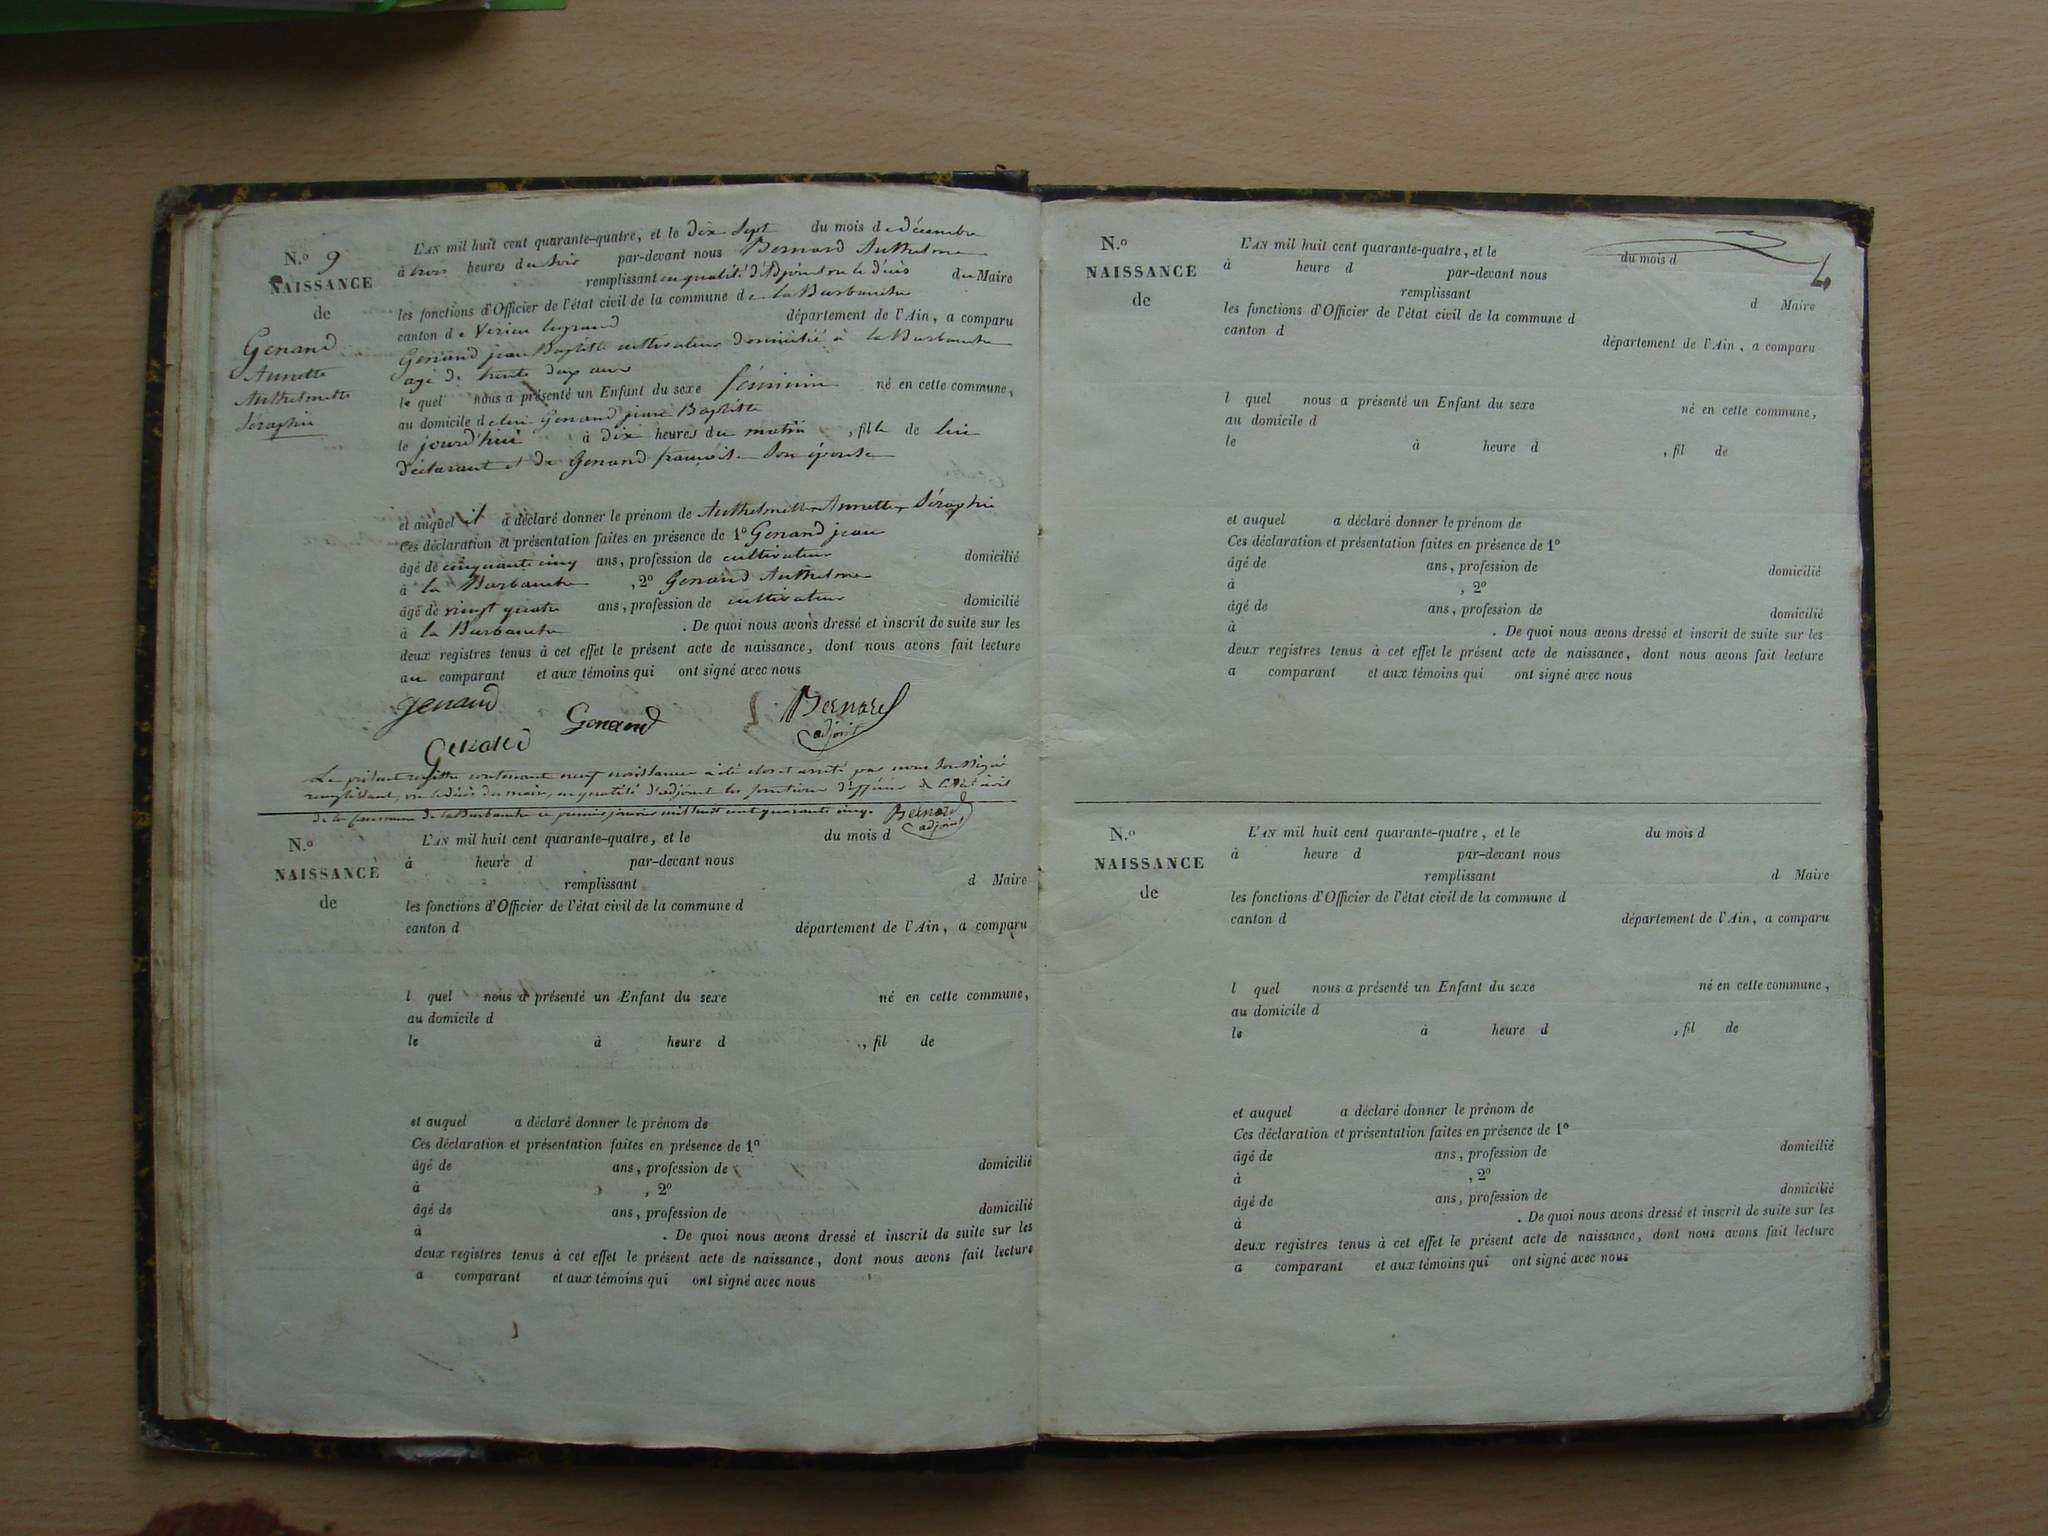 N.o 9
NAISSANCE
de
Genand
Annette
Anthelmette
Séraphie
L'AN mil huit cent quarante-quatre, et le dix Sept du mois de décembre
à trois heures du Soir par-devant nous Bernard Anthelme
remplissant en qualité d'Adjoint vu le décès du Maire
les fonctions d'Officier de l'état civil de la commune de la Burbanche
canton de Virieu legrand département de l'Ain, a comparu
Genand jean Baptiste cultivateur domicilié à la Burbanche
agé de trente deux ans
lequel nous a présenté un Enfant du sexe féminin né en cette commune,
au domicile de lui Genand jean Baptiste
le jourd'hui à dix heures du matin, fille de lui
déclarant et de Genand françoise Son épouse
et auquel il a déclaré donner le prénom de Anthelmette Annette Séraphie
Ces déclaration et présentation faites en présence de 1o Genand jean
âgé de cinquante cinq ans, profession de cultivateur domicilié
à la Burbanche, 2o Genand Anthelme
âgé de vingt quatre ans, profession de cultivateur domicilié
à la Burbanche. De quoi nous avons dressé et inscrit de suite sur les
deux registres tenus à cet effet le présent acte de naissance, dont nous avons fait lecture
au comparant et aux témoins qui ont signé avec nous
genand
Genand
Bernard
adjoint
Genand
Le présent registre contenant neuf naissances a été clos et arrêté par nous Soussigné
remplissant, vu le décès du maire, en qualité d'adjoint les fonctions d'officier de l'Etat civil
de la Commune de la Burbanche ce premier janvier mil huit cent quarante cinq. Bernard
adjoint
N.o
NAISSANCE
de
L'AN mil huit cent quarante-quatre, et le du mois d
à heure d par-devant nous
remplissant d Maire
les fonctions d'Officier de l'état civil de la commune d
canton d département de l'Ain, a comparu
l quel nous a présenté un Enfant du sexe né en cette commune,
au domicile d
le à heure d , fil de
et auquel a déclaré donner le prénom de
Ces déclaration et présentation faites en présence de 1o
âgé de ans, profession de domicilié
à , 2o
âgé de ans, profession de domicilié
à . De quoi nous avons dressé et inscrit de suite sur les
deux registres tenus à cet effet le présent acte de naissance, dont nous avons fait lecture
a comparant et aux témoins qui ont signé avec nous
N.o
NAISSANCE
de
L'AN mil huit cent quarante-quatre, et le du mois d
à heure d par-devant nous
remplissant d Maire
les fonctions d'Officier de l'état civil de la commune d
canton d département de l'Ain, a comparu
l quel nous a présenté un Enfant du sexe né en cette commune,
au domicile d
le à heure d , fil de
et auquel a déclaré donner le prénom de
Ces déclaration et présentation faites en présence de 1o
âgé de ans, profession de domicilié
à , 2o
âgé de ans, profession de domicilié
à . De quoi nous avons dressé et inscrit de suite sur les
deux registres tenus à cet effet le présent acte de naissance, dont nous avons fait lecture
a comparant et aux témoins qui ont signé avec nous
N.o
NAISSANCE
de
L'AN mil huit cent quarante-quatre, et le du mois d
à heure d par-devant nous
remplissant d Maire
les fonctions d'Officier de l'état civil de la commune d
canton d département de l'Ain, a comparu
l quel nous a présenté un Enfant du sexe né en cette commune,
au domicile d
le à heure d , fil de
et auquel a déclaré donner le prénom de
Ces déclaration et présentation faites en présence de 1o
âgé de ans, profession de domicilié
à , 2o
âgé de ans, profession de domicilié
à . De quoi nous avons dressé et inscrit de suite sur les
deux registres tenus à cet effet le présent acte de naissance, dont nous avons fait lecture
a comparant et aux témoins qui ont signé avec nous